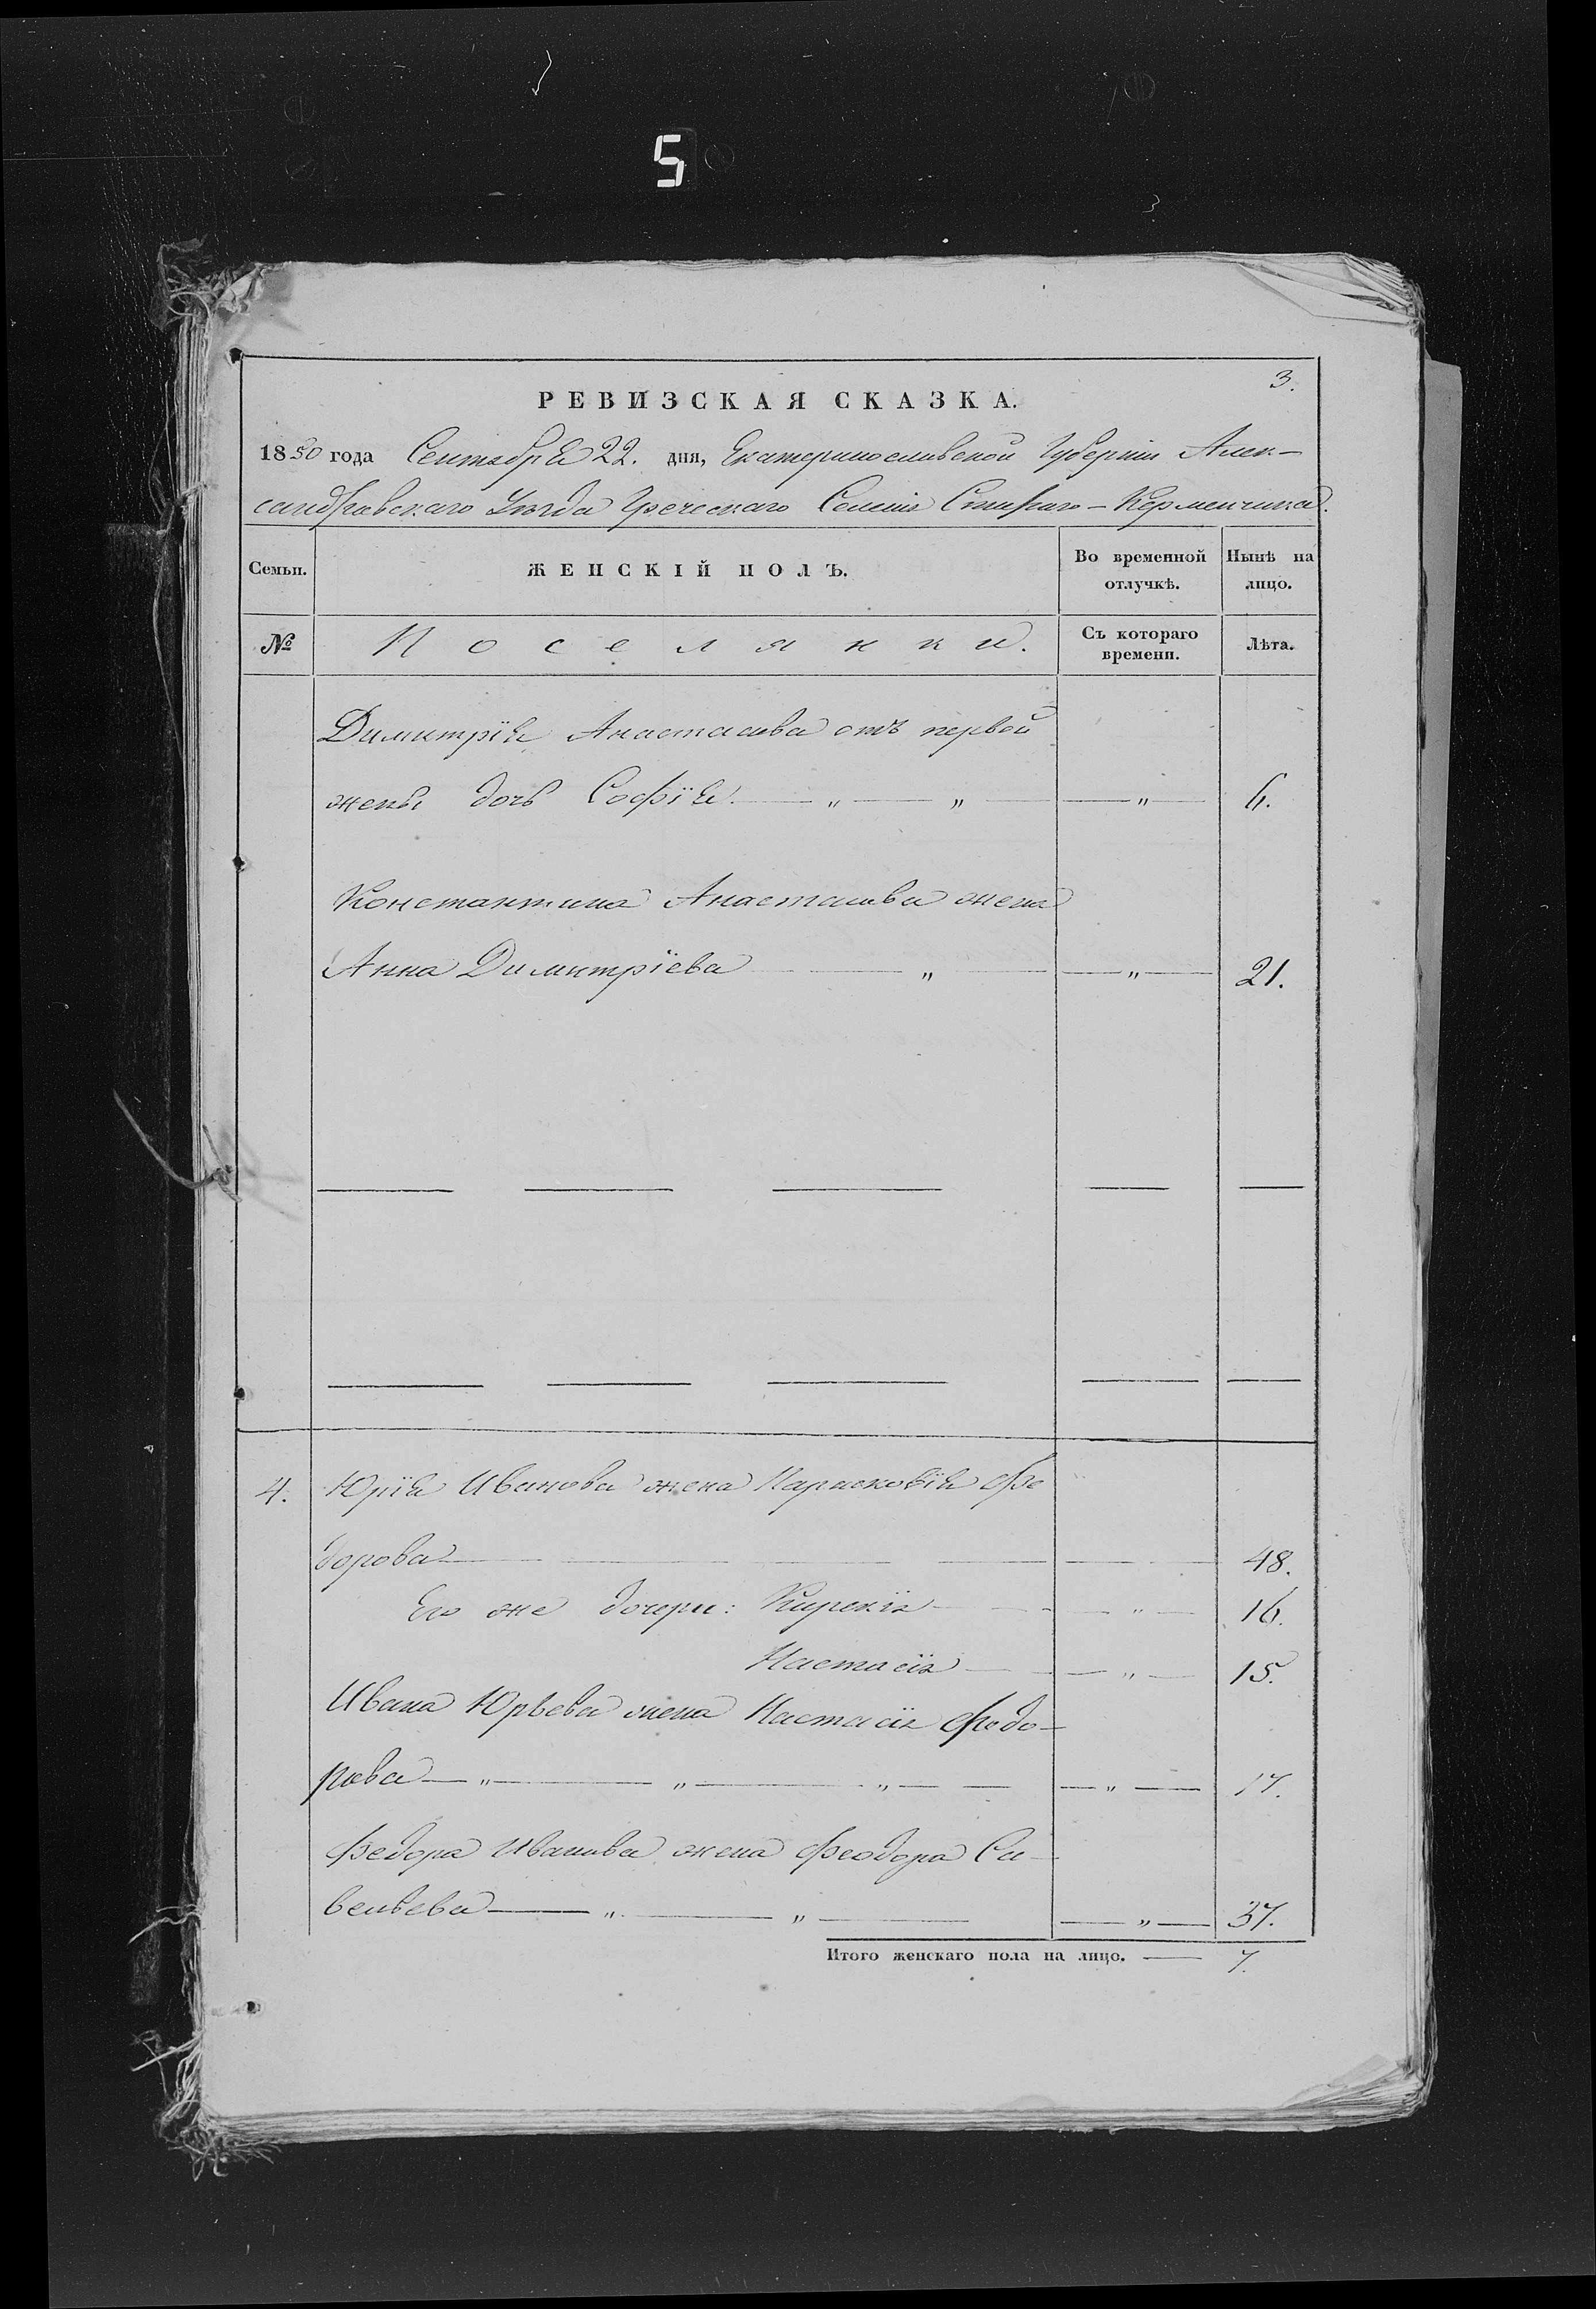 5
3.
РЕВИЗСКАЯ СКАЗКА.
1850 года Сентября 22. дня, Екатеринославской Губерніи Алек-
сандровскаго Уѣзда Греческаго Селенія Стараго-Керменчика.
Семьи. ЖЕНСКІЙ ПОЛЪ. Во временной отлучкѣ. Нынѣ на лицо.
№ Поселянки. Съ котораго времени. Лѣта.
Димитрія Анастасова отъ первой
жены дочь Софія — „ — „ — — „ — 6.
Константина Анастасова жена
Анна Димитріева — „ — — „ — 21.
4. Юрія Иванова жена Парасковія Фе
дорова — 48.
Его же дочери: Кирекія — — „ — 16.
Настасія — — „ — 15.
Ивана Юрьева жена Настасія Федо-
рова — „ — „ — „ — — „ — 17.
Федора Иванова жена Феодора Са-
вельева — „ — „ — — „ — 37.
Итого женскаго пола на лицо. — 7.